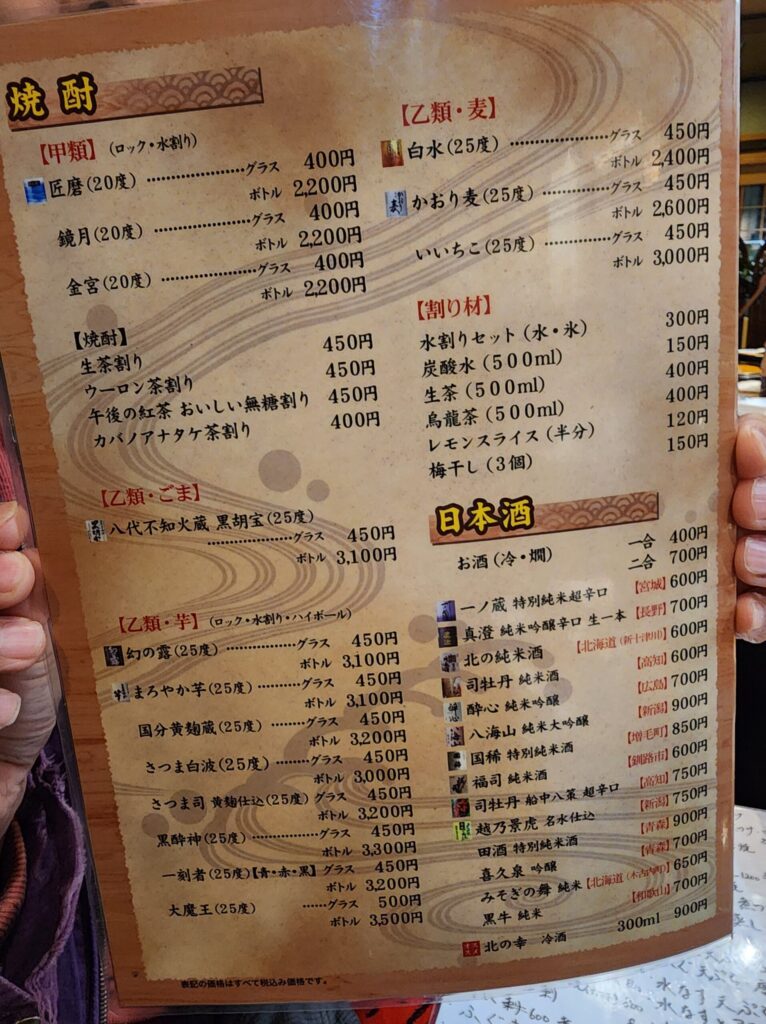 焼酎
【甲類】(ロック・水割り)
匠磨(20度) グラス 400円
ボトル 2,200円
鏡月(20度) グラス 400円
ボトル 2,200円
金宮(20度) グラス 400円
ボトル 2,200円
【焼酎】
生茶割り 450円
ウーロン茶割り 450円
午後の紅茶 おいしい無糖割り 450円
カバノアナタケ茶割り 400円
【乙類・ごま】
八代不知火蔵 黒胡宝(25度)
グラス 450円
ボトル 3,100円
【乙類・芋】(ロック・水割り・ハイボール)
幻の露(25度) グラス 450円
ボトル 3,100円
まろやか芋(25度) グラス 450円
ボトル 3,100円
国分黄麹蔵(25度) グラス 450円
ボトル 3,200円
さつま白波(25度) グラス 450円
ボトル 3,000円
さつま司 黄麹仕込(25度) グラス 450円
ボトル 3,200円
黒酔神(25度) グラス 450円
ボトル 3,300円
一刻者(25度)【青・赤・黒】 グラス 450円
ボトル 3,200円
大魔王(25度) グラス 500円
ボトル 3,500円
表記の価格はすべて税込み価格です。
【乙類・麦】
白水(25度) グラス 450円
ボトル 2,400円
かおり麦(25度) グラス 450円
ボトル 2,600円
いいちこ(25度) グラス 450円
ボトル 3,000円
【割り材】
水割りセット(水・氷) 300円
炭酸水(500ml) 150円
生茶(500ml) 400円
烏龍茶(500ml) 400円
レモンスライス(半分) 120円
梅干し(3個) 150円
日本酒
お酒(冷・燗) 一合 400円
二合 700円
一ノ蔵 特別純米超辛口 【宮城】600円
真澄 純米吟醸辛口 生一本 【長野】700円
北の純米酒 【北海道(新十津川)】600円
司牡丹 純米酒 【高知】600円
酔心 純米吟醸 【広島】700円
八海山 純米大吟醸 【新潟】900円
国稀 特別純米酒 【増毛町】850円
福司 純米酒 【釧路市】600円
司牡丹 船中八策 超辛口 【高知】750円
越乃景虎 名水仕込 【新潟】750円
田酒 特別純米酒 【青森】900円
喜久泉 吟醸 【青森】700円
みそぎの舞 純米 【北海道(木古内町)】650円
黒牛 純米 【和歌山】700円
北の幸 冷酒 300ml 900円